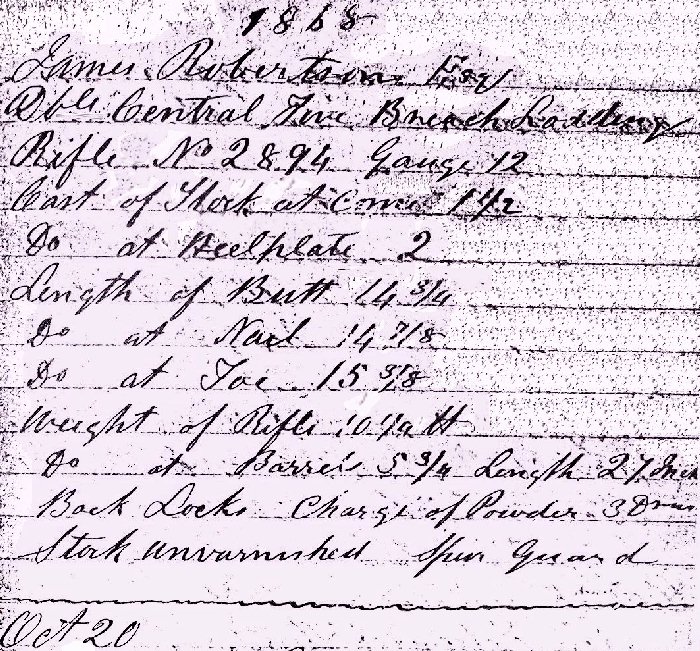 1868
James Robertson Esq
Dble Central Fire Breach Loading
Rifle No 2894 Gauge 12
Cast of Stock at Come 1 1/2
Do at Heelplate 2
Length of Butt 14 3/4
Do at Nail 14 7/8
Do at Toe 15 3/8
Weight of Rifle 10 1/4 lb
Do at Barrels 5 3/4 Length 27 Inch
Back Locks Charge of Powder 3 Drms
Stock unvarnished Spur Guard
Oct 20